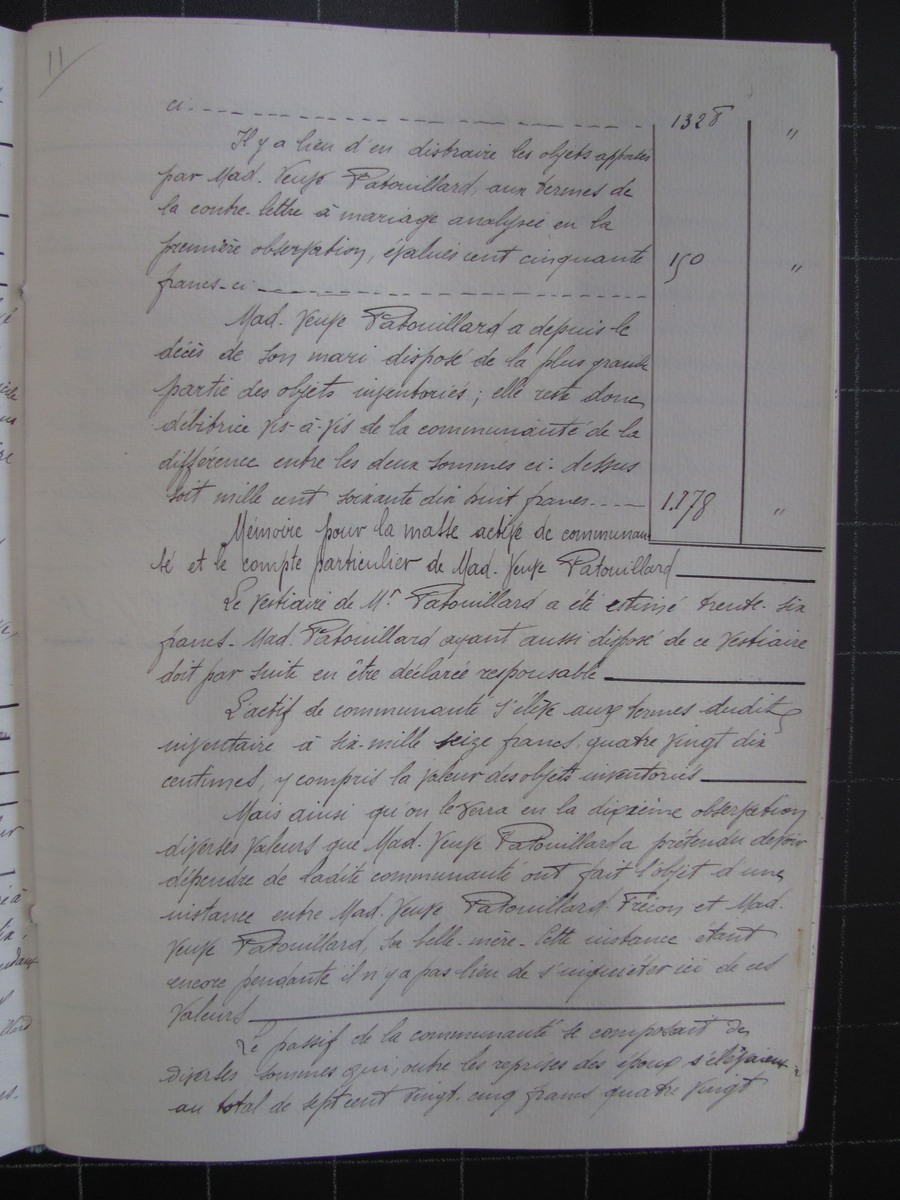 11
ci. 1328 "
Il y a lieu d'en distraire les objets apportés
par Mad. Veuve Patouillard, aux termes de
la contre-lettre à mariage analysée en la
première observation, évalués cent cinquante 150 "
francs - ci
Mad. Veuve Patouillard a depuis le
décès de son mari disposé de la plus grande
partie des objets inventoriés ; elle reste donc
débitrice vis-à-vis de la communauté de la
différence entre les deux sommes ci-dessus
soit mille cent soixante dix huit francs 1.178 "
Mémoire pour la masse active de communau
té et le compte particulier de Mad. Veuve Patouillard
Le Vestiaire de Mr Patouillard a été estimé trente-six
francs - Mad. Patouillard ayant aussi disposé de ce Vestiaire
doit par suite en être déclarée responsable
L'actif de communauté s'élève aux termes dudit
inventaire à six-mille seize francs, quatre vingt dix
centimes, y compris la valeur des objets inventoriés
Mais ainsi qu'on le verra en la dixième observation
diverses valeurs que Mad. Veuve Patouillard a prétendu devoir
dépendre de ladite communauté ont fait l'objet d'une
instance entre Mad. Veuve Patouillard-Fréson et Mad.
Veuve Patouillard, sa belle-mère - Cette instance étant
encore pendante il n'y a pas lieu de s'inquiéter ici de ces
valeurs
Le passif de la communauté se composait de
diverses sommes qui, outre les reprises des époux s'élevaient
au total de sept cent vingt-cinq francs quatre vingt